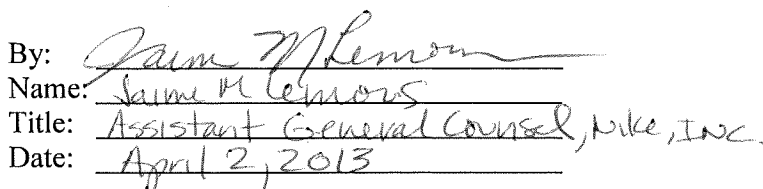 By: Jaime M Lemons
Name: Jaime M Lemons
Title: Assistant General Counsel, Nike, INC.
Date: April 2, 2013